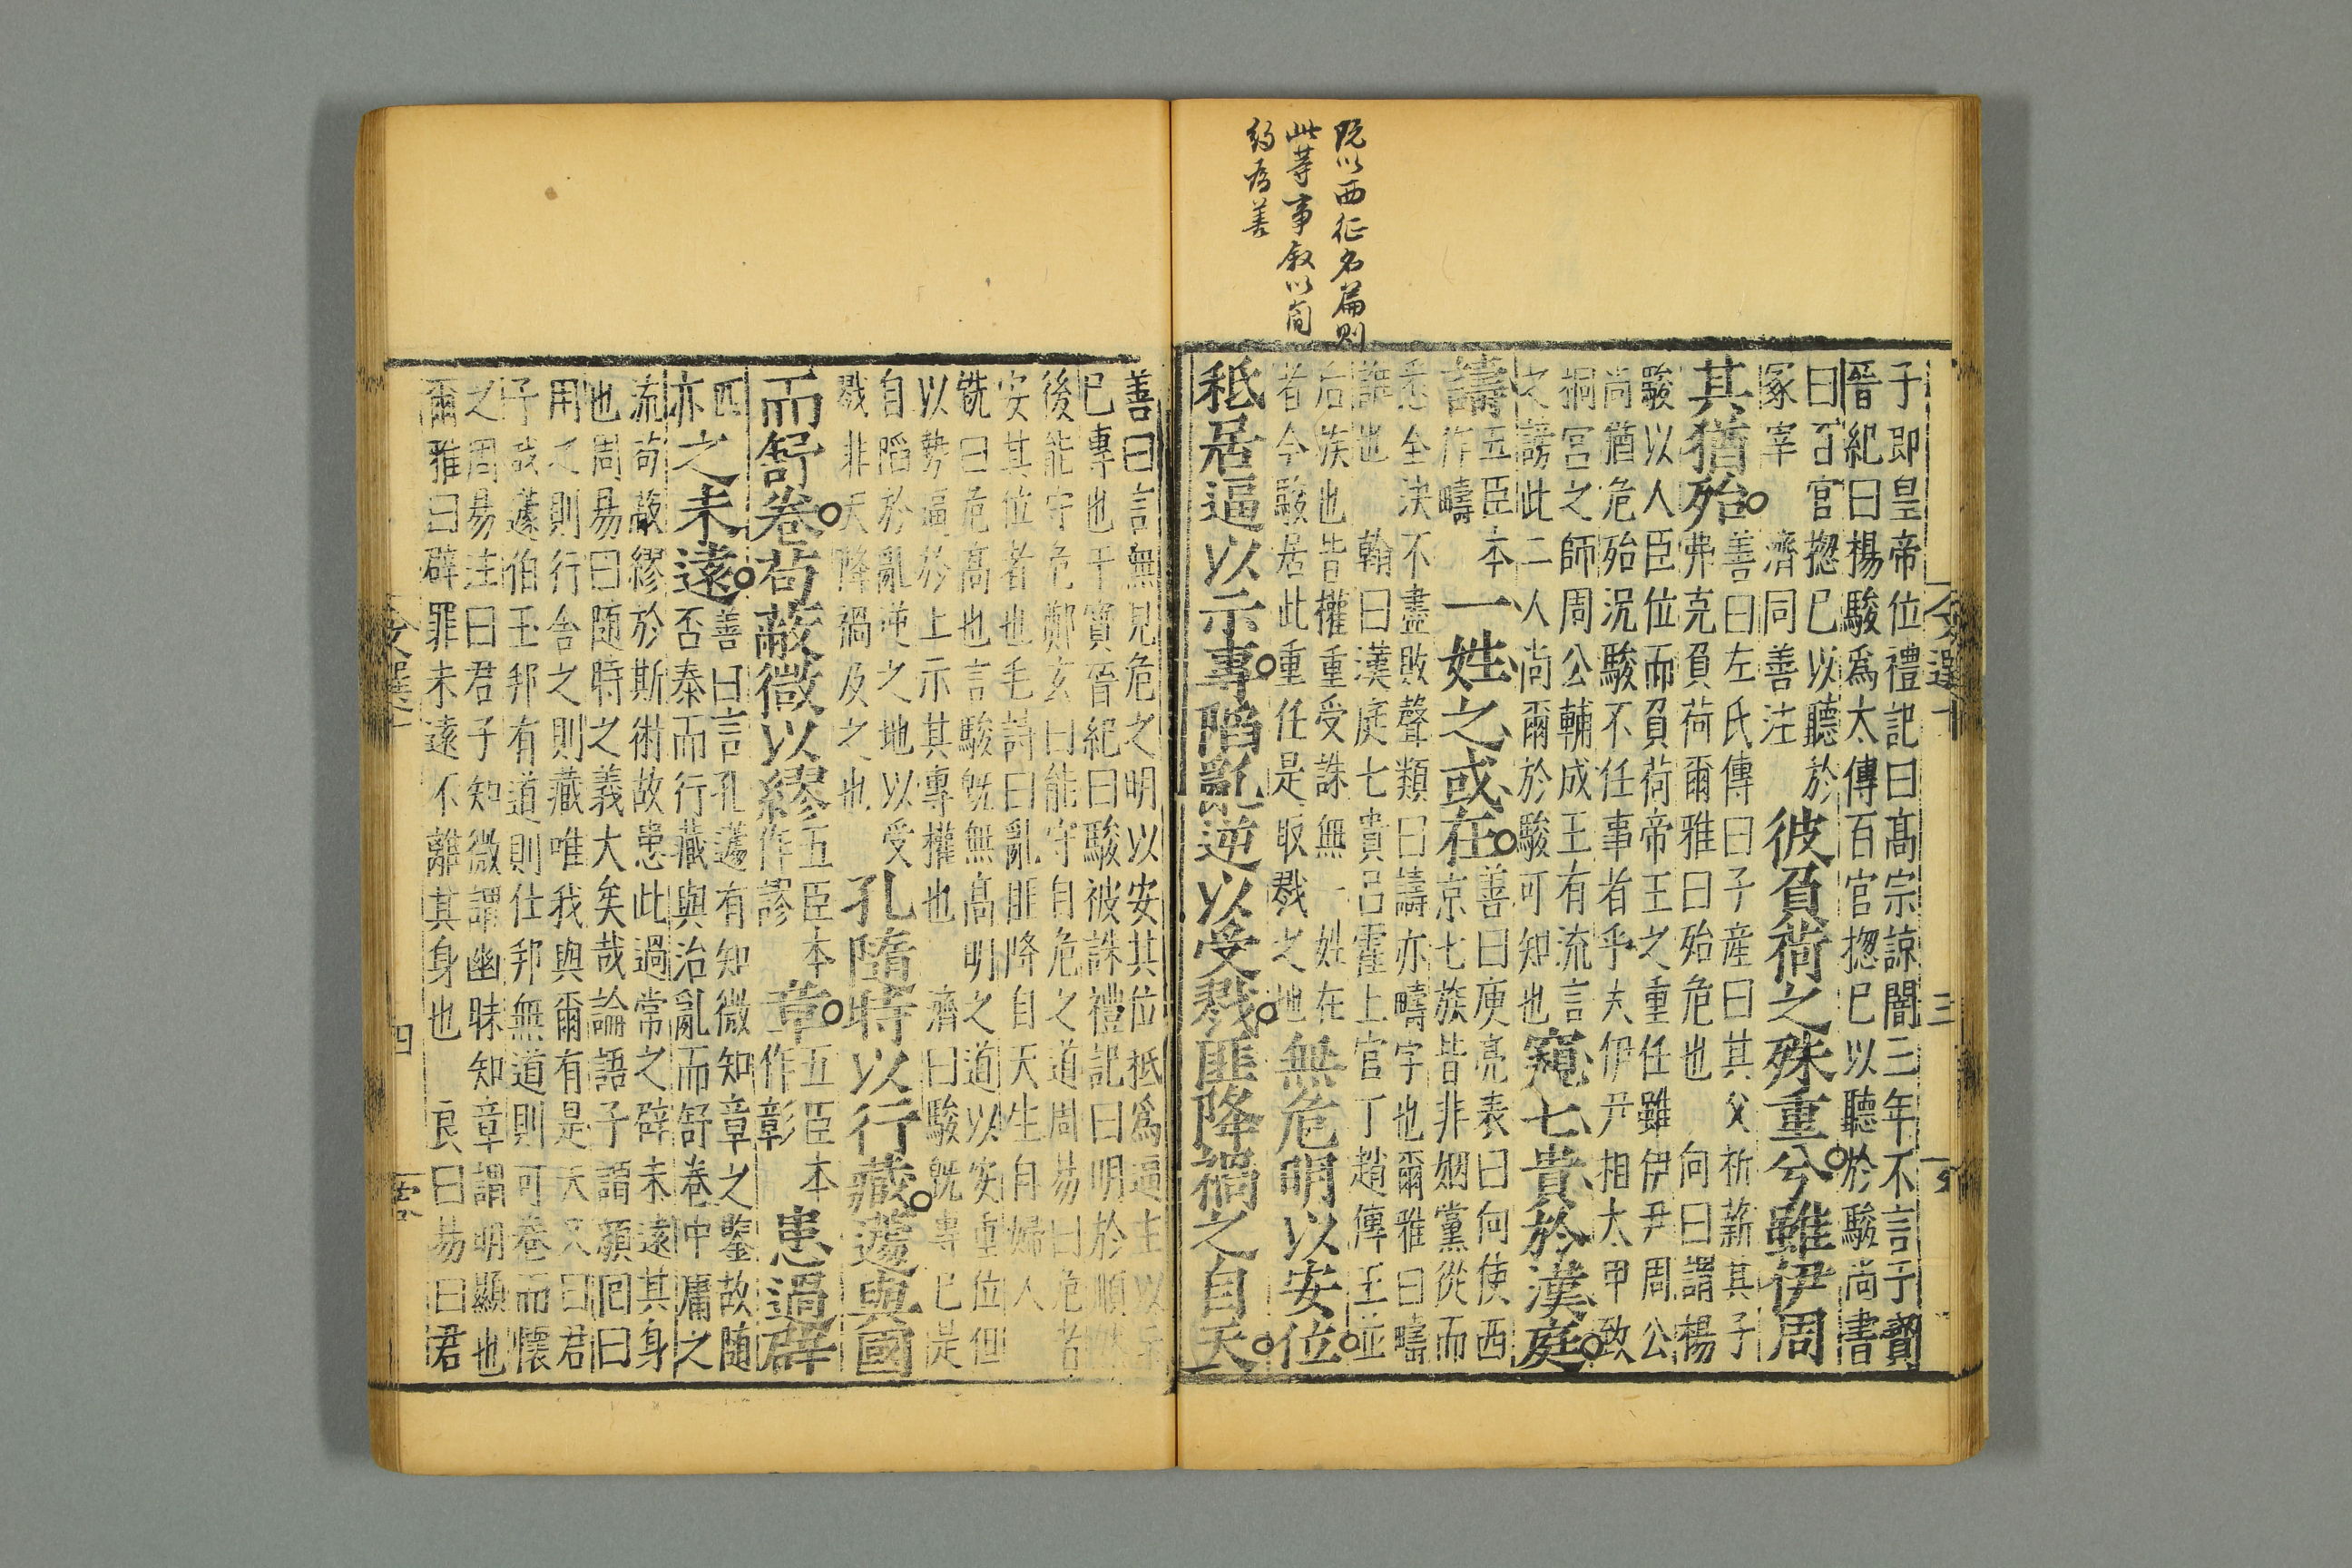 既以西征名篇則
此等事叙以簡
約為善
子即皇帝位禮記曰髙宗諒闇三年不言于寶
晉紀曰楊駿爲太傅百官揔巳以聽於駿尚書
曰百官揔巳以聽於
冢宰 濟同善注
彼負荷之殊重兮雖伊周
其猶殆
善曰左氏傳曰子産曰其父祈薪其子
弗克負荷爾雅曰殆危也 向曰謂楊
駿以人臣位而負荷帝王之重任雖伊尹周公
尚猶危殆況駿不任事者乎夫伊尹相太甲致
桐宮之師周公輔成王有流言
之謗此二人尚爾於駿可知也
窺七貴於漢庭
譸
五臣本
作疇
一姓之或在
善曰庾亮表曰向使西
京七族皆非姻黨從而
悉全決不盡敗聲類曰譸亦疇字也爾雅曰疇
誰也 翰曰漢庭七貴吕霍上官丁趙傅王並
后族也皆權重受誅無一姓在
者今駿居此重任是取戮之地
無危明以安位
秪居逼以示專陷亂逆以受戮匪降禍之自天
文選十
三
善曰言無見危之明以安其位秪爲逼主以示
巳專也干寶晉紀曰駿被誅禮記曰明於順然
後能守危鄭玄曰能守自危之道周易曰危者
安其位者也毛詩曰亂匪降自天生自婦人
銑曰危髙也言駿旣無髙明之道以安重位但
以勢逼於上示其專權也 濟曰駿旣專巳是
自蹈於亂逆之地以受
戮非天降禍及之也
孔隨時以行藏蘧與國
而舒卷苟蔽微以繆
五臣本
作謬
章
五臣本
作彰
患過辟
匹
亦
之未遠
善曰言孔蘧有知微知章之鑒故随
否泰而行藏與治亂而舒卷中庸之
流苟蔽繆於斯術故患此過常之辟未遠其身
也周易曰随時之義大矣哉論語子謂顔回曰
用之則行舎之則藏唯我與爾有是夫又曰君
子哉蘧伯玉邦有道則仕邦無道則可卷而懷
之周易注曰君子知微謂幽昧知章謂明顯也
爾雅曰辟罪未遠不離其身也 良曰易曰君
文選十
四